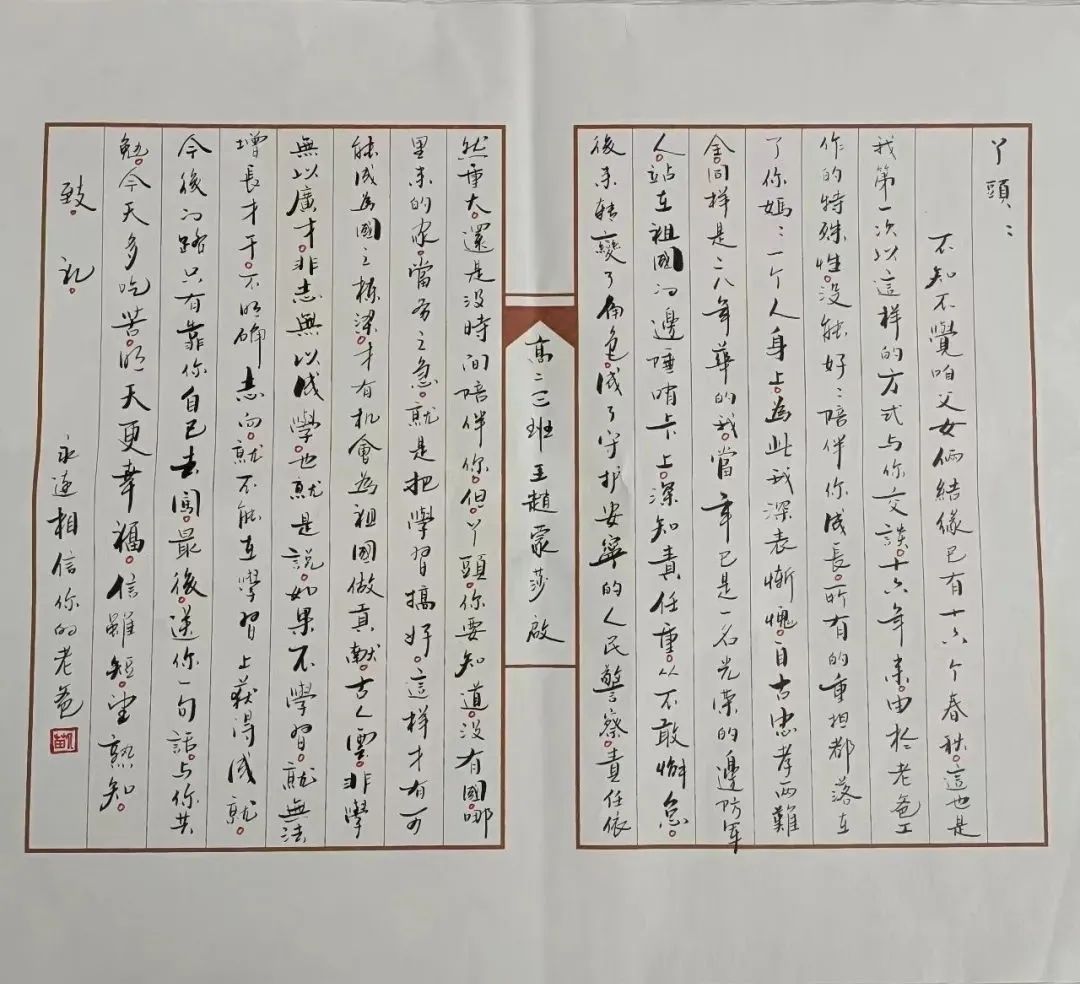 丫頭：
不知不覺咱父女倆結緣已有十六个春秩。這也是
我第一次以這样的方式与你交談。十六年来。由於老爸工
作的特殊性。没能好：陪伴你成長。所有的重担都落在
了你媽：一个人身上。為此我深表慚愧。自古忠孝两難
全。同样是二八年華的我。當年已是一名光荣的邊防军
人。站在祖國的邊陲哨卡上。深知責任重。从不敢懈怠。
後来轉變了角色。成了守护安寧的人民警察。責任依
高二三班王趙蒙莎啟
然重大。還是没時间陪伴你。但丫頭。你要知道。没有國。哪
里来的家。當务之急。就是把學習搞好。這样才有可
能成為國之栋梁。才有机會為祖國做貢献。古人雲。非學
無以廣才。非志無以成學。也就是說。如果不學習。就無法
增長才干。不明确志向。就不能在學習上获得成就。
今後的路只有靠你自己去闖。最後。送你一句話。与你共
勉。今天多吃苦。明天更幸福。信雖短。望熟知。
致礼。
永遠相信你的老爸